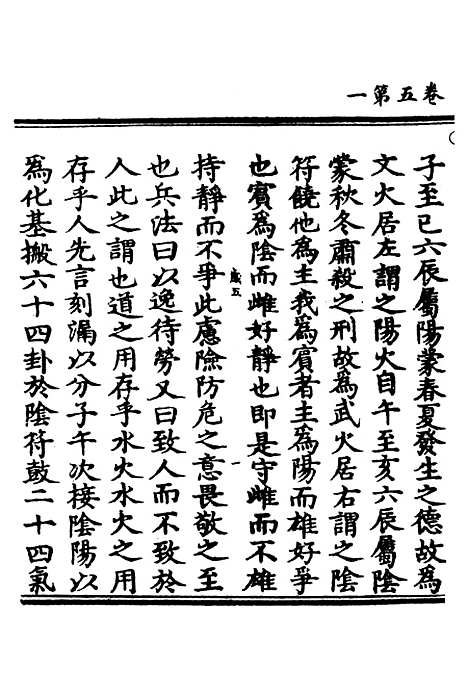 卷五第一
子至巳六辰屬陽蒙春夏發生之德故為
文火居左謂之陽火自午至亥六辰屬陰
蒙秋冬肅殺之刑故為武火居右謂之陰
符饒他為主我為賓者主為陽而雄好爭
也賓為陰而雌好靜也即是守雌而不雄
咸五
一
持靜而不爭此慮險防危之意畏敬之至
也兵法曰以逸待勞又曰致人而不致於
人此之謂也道之用存乎水火水火之用
存乎人先言刻漏以分子午次接陰陽以
為化基搬六十四卦於陰符鼓二十四氣